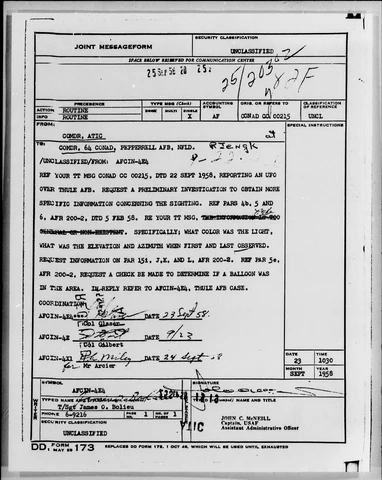 JOINT MESSAGEFORM
SECURITY CLASSIFICATION
UNCLASSIFIED
SPACE BELOW RESERVED FOR COMMUNICATION CENTER
25 SEP 58 20 25z
PRECEDENCE
TYPE MSG (Check)
ACCOUNTING SYMBOL
ORIG. OR REFERS TO
CLASSIFICATION OF REFERENCE
ACTION
ROUTINE
BOOK
MULTI
SINGLE
INFO
ROUTINE
X
AF
CONAD CC 00215
UNCL
FROM:
SPECIAL INSTRUCTIONS
COMDR, ATIC
TO:
COMDR, 64 CONAD, PEPPERRELL AFB, NFLD.
/UNCLASSIFIED/FROM: AFCIN-4E4
REF YOUR TT MSG CONAD CC 00215, DTD 22 SEPT 1958, REPORTING AN UFO
OVER THULE AFB. REQUEST A PRELIMINARY INVESTIGATION TO OBTAIN MORE
SPECIFIC INFORMATION CONCERNING THE SIGHTING. REF PARS 4b, 5 AND
6, AFR 200-2, DTD 5 FEB 58. RE YOUR TT MSG, THE INFORMATION IS TOO
GENERAL OR NON-EXISTENT. SPECIFICALLY; WHAT COLOR WAS THE LIGHT,
WHAT WAS THE ELEVATION AND AZIMUTH WHEN FIRST AND LAST OBSERVED.
REQUEST INFORMATION ON PAR 15i, J, K, AND L, AFR 200-2. REF PAR 5e,
AFR 200-2, REQUEST A CHECK BE MADE TO DETERMINE IF A BALLOON WAS
IN THE AREA. IN REPLY REFER TO AFCIN-4E4, THULE AFB CASE.
COORDINATION:
AFCIN-4E4 DATE 23 Sept 58
Col Glaser
AFCIN-4E DATE 9/23
Col Gilbert
AFCIN-4X1 DATE 24 Sept 58
for Mr Arcier
DATE
TIME
23
1030
MONTH
YEAR
SEPT
1958
SYMBOL
AFCIN-4E4
SIGNATURE
WRITER
TYPED NAME AND TITLE
T/Sgt James O. Bolieu
PHONE
6-9216
PAGE NR.
1
NR. OF PAGES
1
SECURITY CLASSIFICATION
UNCLASSIFIED
TYPED NAME AND TITLE
JOHN C. McNEILL
Captain, USAF
Assistant Administrative Officer
DD FORM 1 MAY 55 173
REPLACES DD FORM 173, 1 OCT 49, WHICH WILL BE USED UNTIL EXHAUSTED